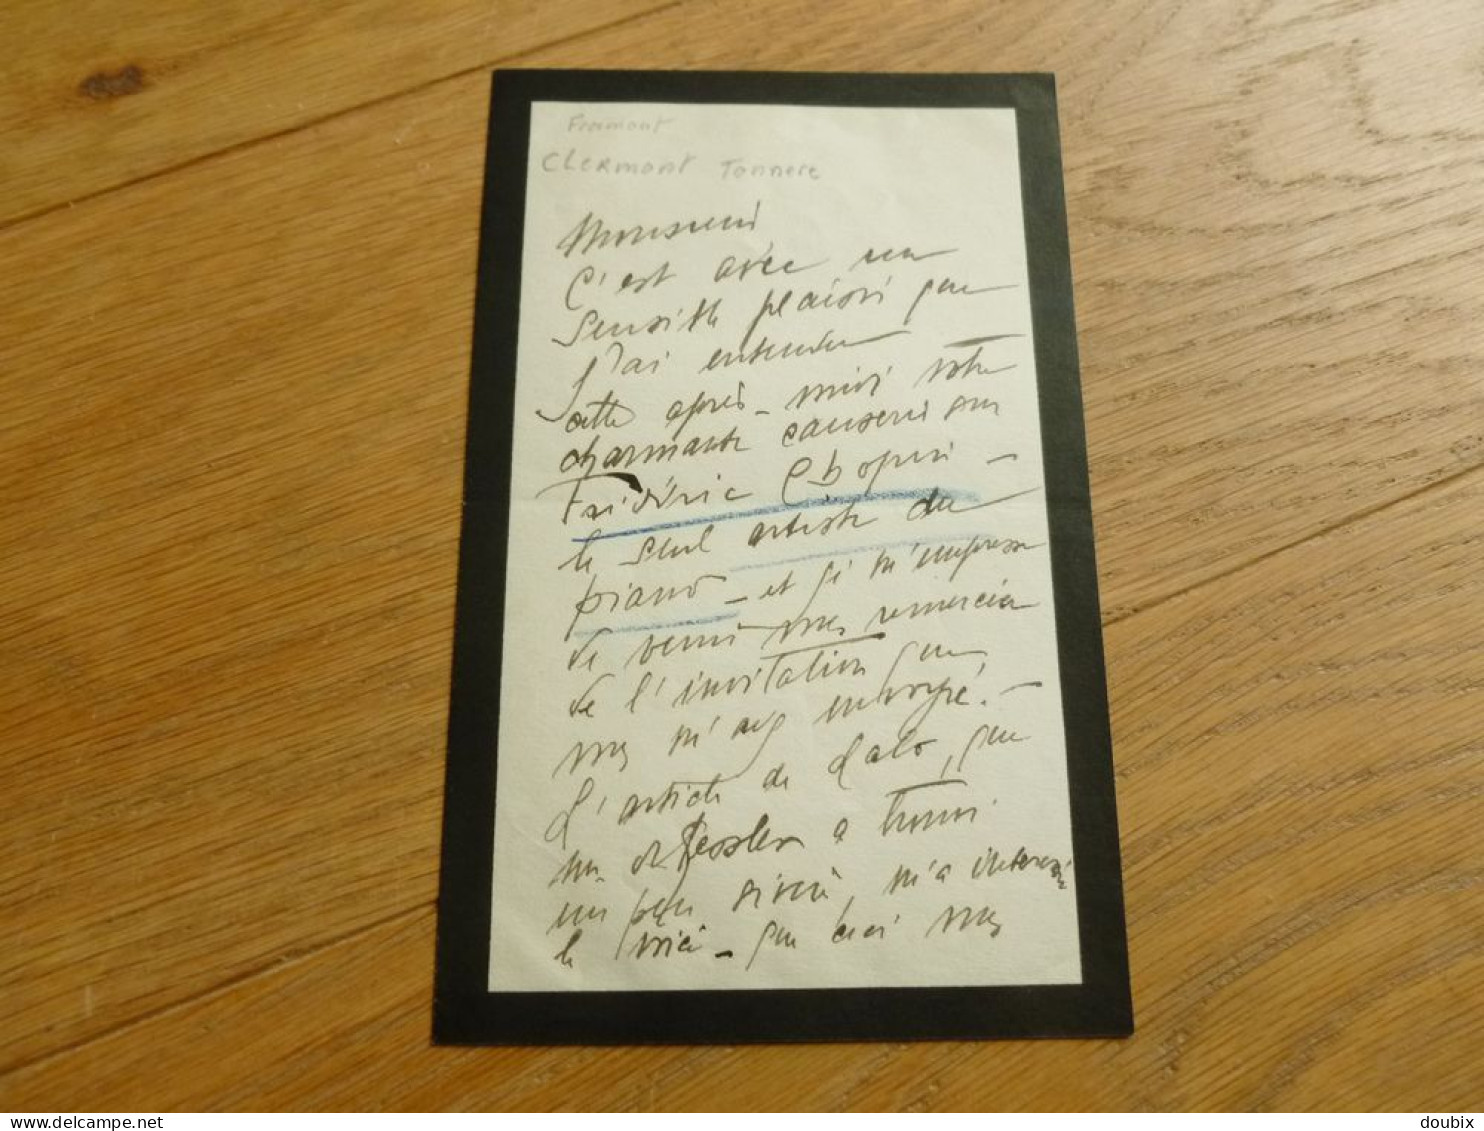 Framont
Clermont Tonnere
Monsieur
C'est avec un
sensible plaisir que
j'ai entendu
cette après-midi votre
charmante causerie sur
Frédéric Chopin -
le seul artiste du
piano - et je m'empresse
de venir vous remercier
de l'invitation que
vous m'avez envoyée. -
L'article de Lalo, que
un peu sévère, m'a intéressé
le voici - que ceci vous
www.delcampe.net
doubix